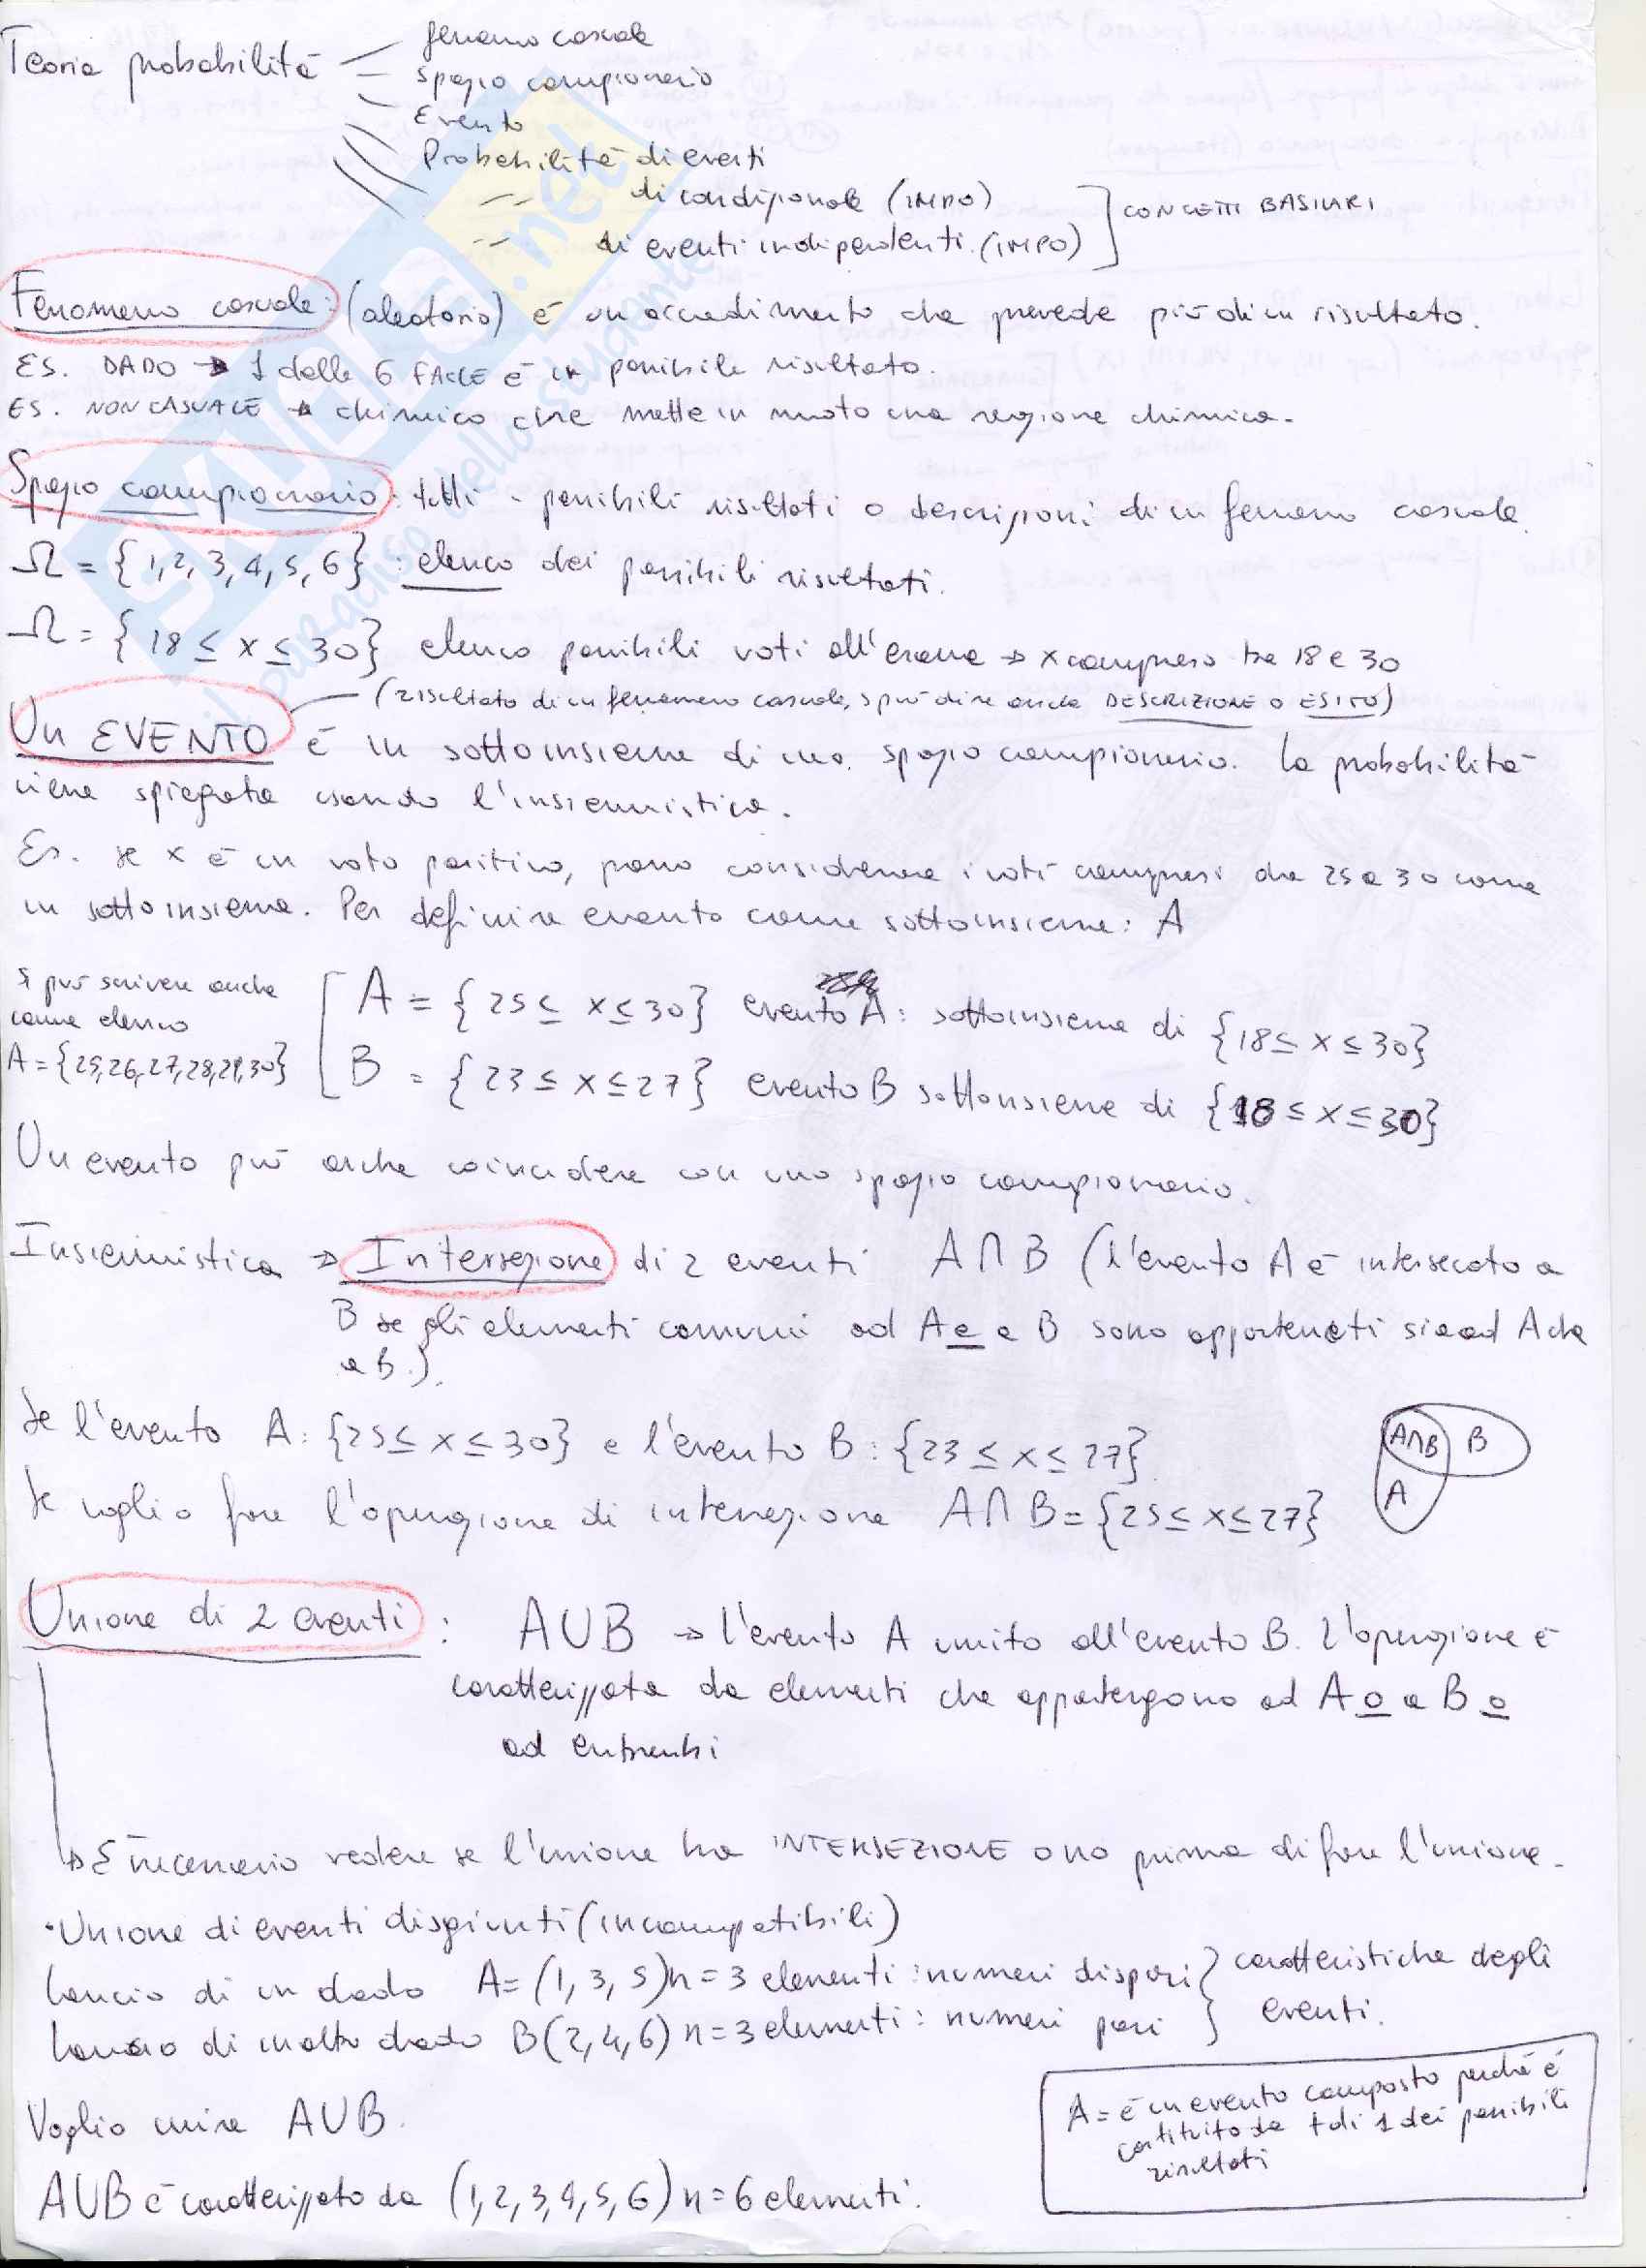 Teoria probabilità
fenomeno casuale
spazio campionario
Evento
Probabilità di eventi
di condizionale (IMPO)
di eventi indipendenti (IMPO)
CONCETTI BASILARI
Fenomeno casuale: (aleatorio) è un accadimento che prevede più di un risultato.
ES. DADO → 1 delle 6 FACCE è un possibile risultato.
ES. NON CASUALE → chimico che mette in moto una regione chimica.
Spazio campionario: tutti i possibili risultati o descrizioni di un fenomeno casuale.
Ω = {1,2,3,4,5,6} : elenco dei possibili risultati.
Ω = {18 ≤ x ≤ 30} elenco possibili voti all'esame → x compreso tra 18 e 30
(risultato di un fenomeno casuale, si può dire anche DESCRIZIONE O ESITO)
Un EVENTO è un sottoinsieme di uno spazio campionario. La probabilità
viene spiegata usando l'insiemistica.
Es. se x è un voto positivo, posso considerare i voti compresi da 25 a 30 come
un sottoinsieme. Per definire evento come sottoinsieme: A
Si può scrivere anche
come elenco
A = {25,26,27,28,29,30}
A = {25 ≤ x ≤ 30} evento A: sottoinsieme di {18 ≤ x ≤ 30}
B = {23 ≤ x ≤ 27} evento B sottoinsieme di {18 ≤ x ≤ 30}
Un evento può anche coincidere con uno spazio campionario.
Insiemistica → Intersezione di 2 eventi A∩B (l'evento A è intersecato a
B se gli elementi comuni ad A e a B sono appartenenti sia ad A che
a B.).
Se l'evento A: {25 ≤ x ≤ 30} e l'evento B: {23 ≤ x ≤ 27}
Se voglio fare l'operazione di intersezione A∩B = {25 ≤ x ≤ 27}
A∩B B
A
Unione di 2 eventi: A∪B → l'evento A unito all'evento B. L'operazione è
caratterizzata da elementi che appartengono ad A o a B o
ad entrambi
→ È necessario vedere se l'unione ha INTERSEZIONE o no prima di fare l'unione.
• Unione di eventi disgiunti (incompatibili)
Lancio di un dado A = (1, 3, 5) n = 3 elementi: numeri dispari
Lancio di un altro dado B (2,4,6) n = 3 elementi: numeri pari
caratteristiche degli
eventi.
Voglio unire A∪B.
A∪B è caratterizzato da (1,2,3,4,5,6) n = 6 elementi.
A = è un evento composto perchè è
costituito da + di 1 dei possibili
risultati
SKUOLA.net
il paradiso dello studente